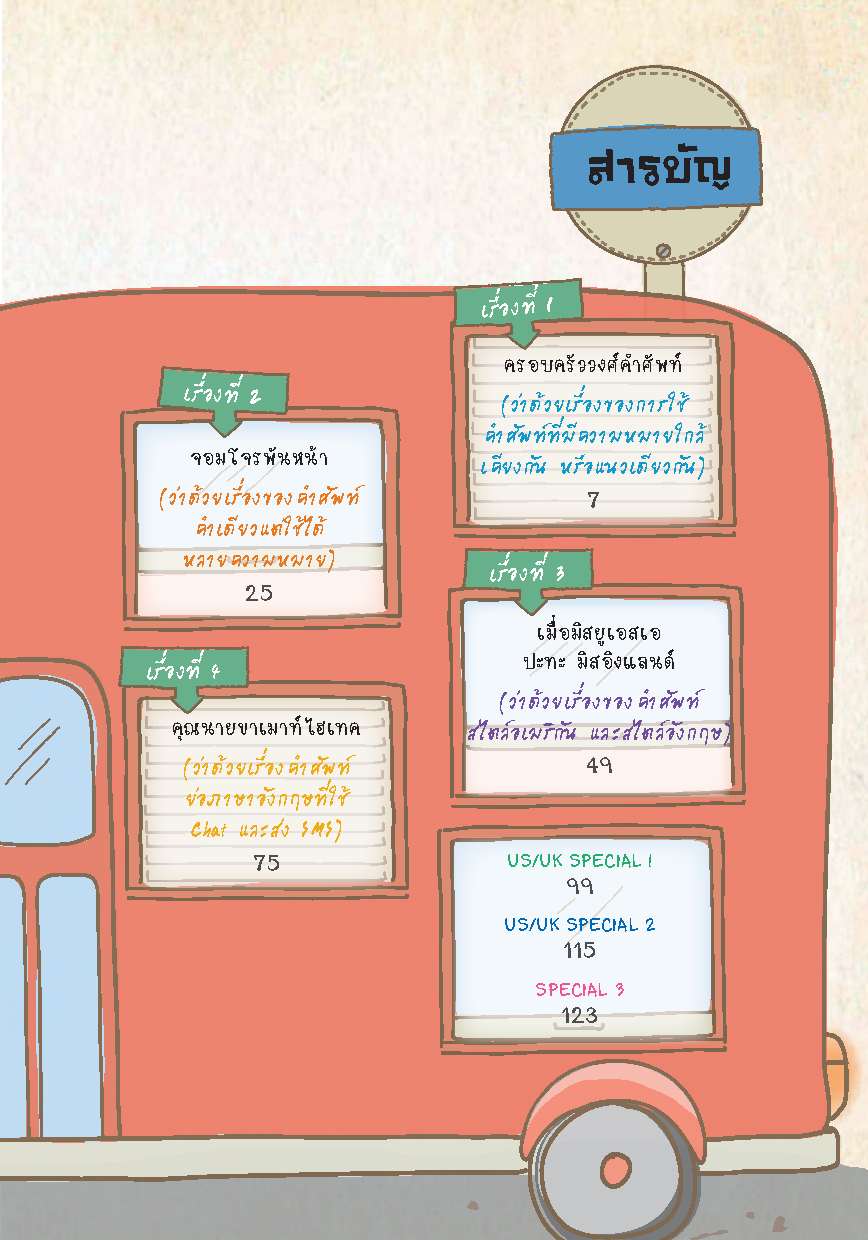 สารบัญ
เรื่องที่ 1
ครอบครัววงศ์คำศัพท์
(ว่าด้วยเรื่องของการใช้
คำศัพท์ที่มีความหมายใกล้
เคียงกัน หรือแนวเดียวกัน)
7
เรื่องที่ 2
จอมโจรพันหน้า
(ว่าด้วยเรื่องของคำศัพท์
คำเดียวแต่ใช้ได้
หลายความหมาย)
25
เรื่องที่ 3
เมื่อมิสยูเอสเอ
ปะทะ มิสอิงแลนด์
(ว่าด้วยเรื่องของคำศัพท์
สไตล์อเมริกัน และสไตล์อังกฤษ)
49
เรื่องที่ 4
คุณนายขาเมาท์ไฮเทค
(ว่าด้วยเรื่องคำศัพท์
ย่อภาษาอังกฤษที่ใช้
Chat และส่ง SMS)
75
US/UK SPECIAL 1
99
US/UK SPECIAL 2
115
SPECIAL 3
123